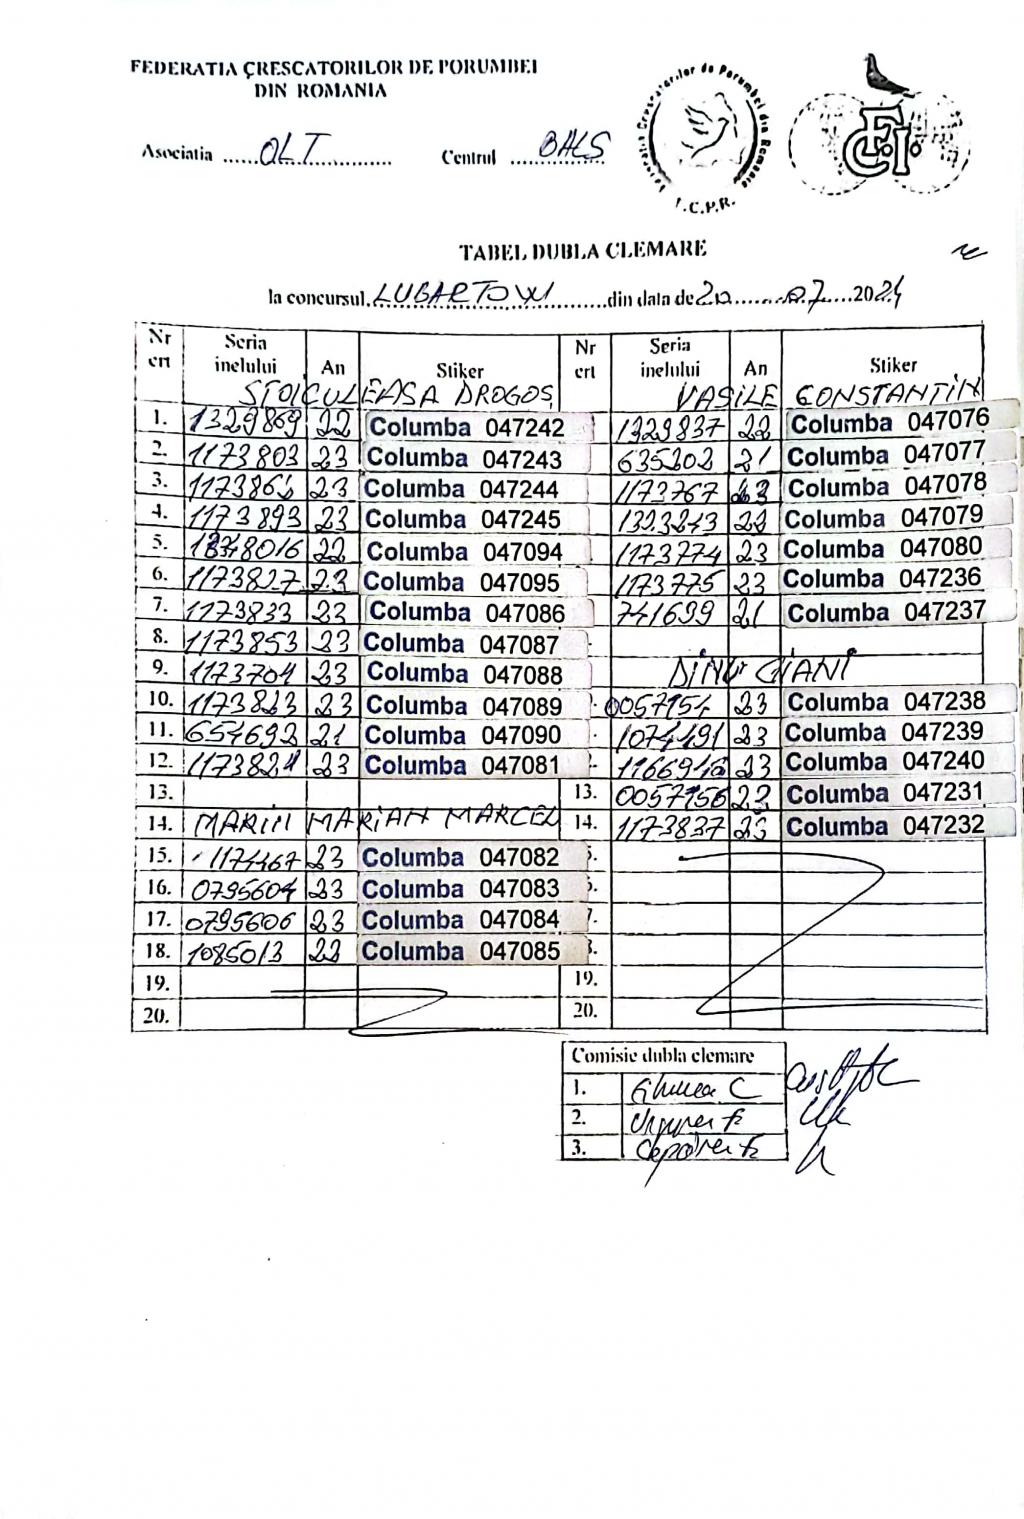 FEDERATIA CRESCATORILOR DE PORUMBEI
DIN ROMANIA
Asociatia ......OLT.............. Centrul ....BALS....
Federatia Crescatorilor de Porumbei din Romania
F.C.P.R.
FCI
TABEL DUBLA CLEMARE
la concursul LUBARTOW din data de 20 07 2024
Nr crt Seria inelului An Stiker Nr crt Seria inelului An Stiker
STOICULEASA DROGOS VASILE CONSTANTIN
1. 1329869 22 Columba 047242 1329837 22 Columba 047076
2. 1173803 23 Columba 047243 635202 21 Columba 047077
3. 1173861 23 Columba 047244 1173767 23 Columba 047078
4. 1173893 23 Columba 047245 1323243 22 Columba 047079
5. 1348016 22 Columba 047094 1173774 23 Columba 047080
6. 1173827 23 Columba 047095 1173775 23 Columba 047236
7. 1173833 23 Columba 047086 741699 21 Columba 047237
8. 1173853 23 Columba 047087
9. 1173704 23 Columba 047088 DINU GIANI
10. 1173823 23 Columba 047089 0057154 23 Columba 047238
11. 654692 21 Columba 047090 1074491 23 Columba 047239
12. 1173821 23 Columba 047081 1166912 23 Columba 047240
13. 13. 0057156 22 Columba 047231
14. MARIN MARIAN MARCEL 14. 1173837 23 Columba 047232
15. 1174467 23 Columba 047082
16. 0795604 23 Columba 047083
17. 0795606 23 Columba 047084
18. 1085013 22 Columba 047085
19. 19.
20. 20.
Comisie dubla clemare
1. C
2.
3.